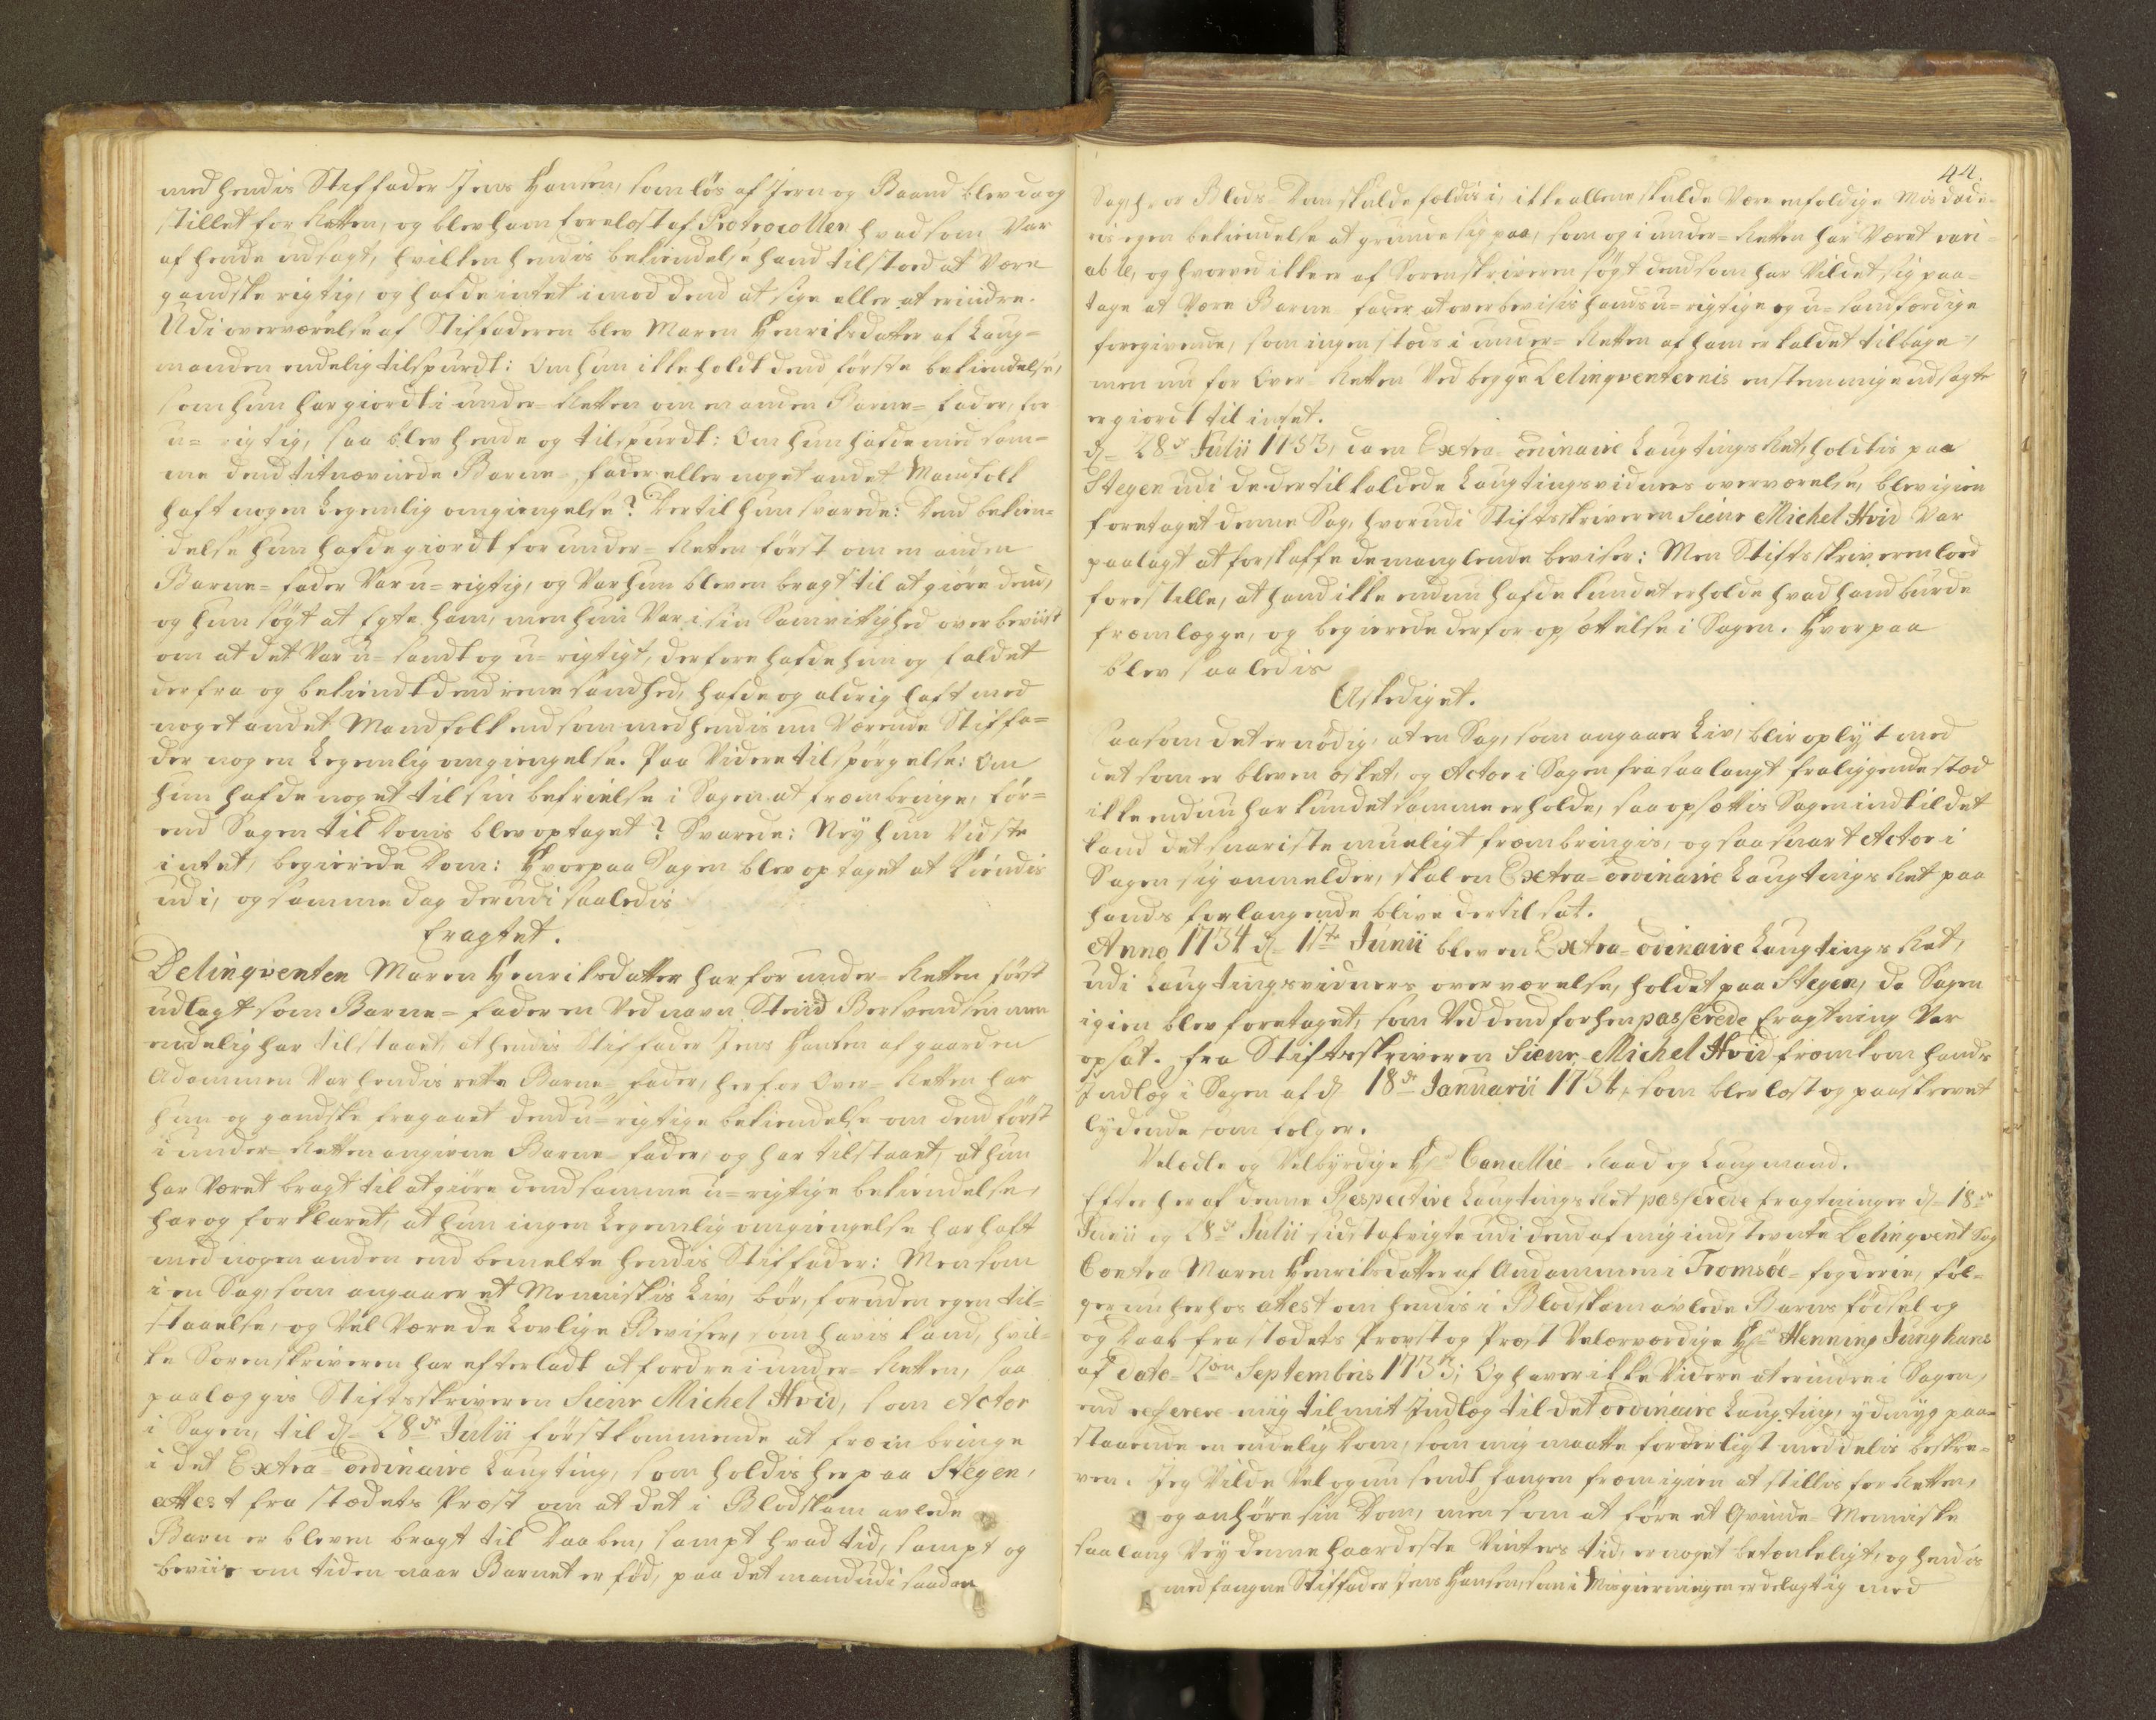 med hendis Stiffader Jens Hansen, som løs af Jern og Baand blev da og
stillet for Retten, og blev ham forelæst af Protrocollen hvad som Var
af hende udsagt, hvilken hendis bekiendelse hand tilstoed at være
gandske rigtig, og hafde intet imod dend at sige eller at erindre.
Udi overværelse af Stiffaderen blev Maren Henriksdatter af Laug-
manden endelig tilspurdt: Om hun ikke holdt dend første bekiendelse,
som hun har giordt i under-Retten om en anden Barne-fader, for
u-rigtig, saa blev hende og tilspurdt: Om hun hafde med sam-
me dend titnævnede Barne-fader eller noget andet Mandfolk
haft nogen Legemlig omgiengelse? Dertil hun svarede: Dend bekien-
delse hun hafde giordt for under-Retten først om en anden
Barne-fader Var u-rigtig, og Var hun bleven bragt til at giøre dend,
og hun søgt at Egte ham, men hun Var i sin Samvitighed overbeviist
om at det Var u-sandt og u-rigtigt, derfore hafde hun og faldet
derfra og bekiendt dend rene sandhed, hafde og aldrig haft med
noget andet Mandfolk end som med hendis nu Værende Stiffa-
der nogen Legemlig omgiengelse. Paa Videre tilspørgelse: Om
hun hafde noget til sin befrielse i Sagen at frembringe, før-
end Sagen til Doms blev optaget? Svarede: Ney hun Vidste
intet, begierede Dom: Hvorpaa Sagen blev optaget at kiendis
udi, og samme dag derudi saaledis
Eragtet.
Delinqventen Maren Henriksdatter har for under-Retten først
udlagt som Barne-fader en Ved navn Steud Bersvendsen men
endelig har tilstaaet, at hendis Stiffader Jens Hansen af gaarden
Adammen Var hendis rette Barne-fader, her for Over-Retten har
hun og gandske fragaaet dend u-rigtige bekiendelse om dend først
i under-Retten angivne Barne-fader, og har tilstaaet, at hun
har Været bragt til at giøre dend samme u-rigtige bekiendelse,
har og forklaret, at hun ingen Legemlig omgiengelse har haft
med nogen anden end bemelte hendis Stiffader: Men som
i en Sag, som angaaer et Menniskis Liv, bør, foruden egen til-
staaelse, og Vel Være de Lovlige Beviser, som havis kand, hvil-
ke Sorenskriveren har efterladt at fordre i under-Retten, saa
paalæggis Stiftsskriveren Sieur Michel Hvid, som Actor
i Sagen, til d. 28de Julii førstkommende at frembringe
i det Extra-ordinaire Laugting, som holdis her paa Stegen,
attest fra stædets Præst om at det i Blodskam avlede
Barn er bleven bragt til Daaben, sampt hvad tid, sampt og
beviis om tiden naar Barnet er fød, paa det mand udi saadan
44.
Sag, hvor Blods-Dom skulde fældis i, ikke allene skulde Være enfoldige Misdæde-
ris egen bekiendelse at grunde sig paa, som og i under-Retten har Været vari-
able, og hvorved ikke er af Sorenskriveren søgt dend som har Vildet sig paa-
tage at Være Barne fader, at overbevisis hands u-rigtige og u-sandfærdige
foregivende, som ingenstæds i under-Retten af ham er kaldet tilbage,
men nu for Over-Retten Ved begge Delinqventernis enstemmige udsagte
er giordt til intet.
d. 28de Julii 1733, da en Extra-ordinaire Laugtings Ret, holdtis paa
Stegen udi de dertil kaldede Laugtingsvidners overværelse, blev igien
foretaget denne Sag, hvorudi Stiftsskriveren Sieur Michel Hvid Var
paalagt at forskaffe de manglende beviser: Men Stiftsskriveren loed
forestille, at hand ikke endnu hafde kundet erholde hvad hand burde
fremlægge, og begierede derfor opsættelse i Sagen. Hvorpaa
blev saaledis
Afskediget.
Saasom det er nødig, at en Sag, som angaaer Liv, blir oplyst med
det som er bleven æsket, og Actor i Sagen fra saa langt fraliggende stæd
ikke endnu har kundet samme erholde, saa opsættis Sagen indtil det
kand det snariste mueligt frembringis, og saa snart Actor i
Sagen sig anmelder, skal en Extra-ordinaire Laugtings Ret paa
hands forlangende blive dertil sat.
Anno 1734 d. 17de Junii blev en Extra-ordinaire Laugtings Ret,
udi Laugtingsvidners overværelse, holdet paa Stegen, da Sagen
igien blev foretaget, som Ved dend forhen passerede Eragtning Var
opsat. Fra Stiftsskriveren Sieur Michel Hvid fremkom hands
Indlæg i Sagen af d. 18de Januarii 1734, som blev læst og paaskrevet
lydende som følger.
Velædle og Velbyrdige Hr. Cancellie-Raad og Laugmand.
Efter her af denne Respective Laugtings Ret passerede Eragtninger d. 18de
Junii og 28de Julii sidst afvigte udi dend af mig indstevnte Delinqvent Sag
Contra Maren Henriksdatter af Andammen i Tromsøe-fogderie, føl-
ger nu herhos attest om hendis i Blodskam avlede Barns fødsel og
og Daab fra stædets Provst og Præst Velærværdige Hr. Henning Junghans
af dato 2den Septembris 1733; Og haver ikke Videre at erindre i Sagen,
end referere mig til mit Indlæg til det ordinaire Laugting, ydmyg paa-
staaende en endelig Dom, som mig maatte forderligst meddelis beskre-
ven. Jeg Vilde Vel og nu sendt fangen frem igien at stillis for Retten,
og anhøre sin Dom, men som at føre et Qvinde-Menniske
saa lang Vey denne haardeste Vinters tid, er noget betænkeligt, og hendis
medfangne Stiffader Jens Hansen, som i Misgierningen er delagtig med